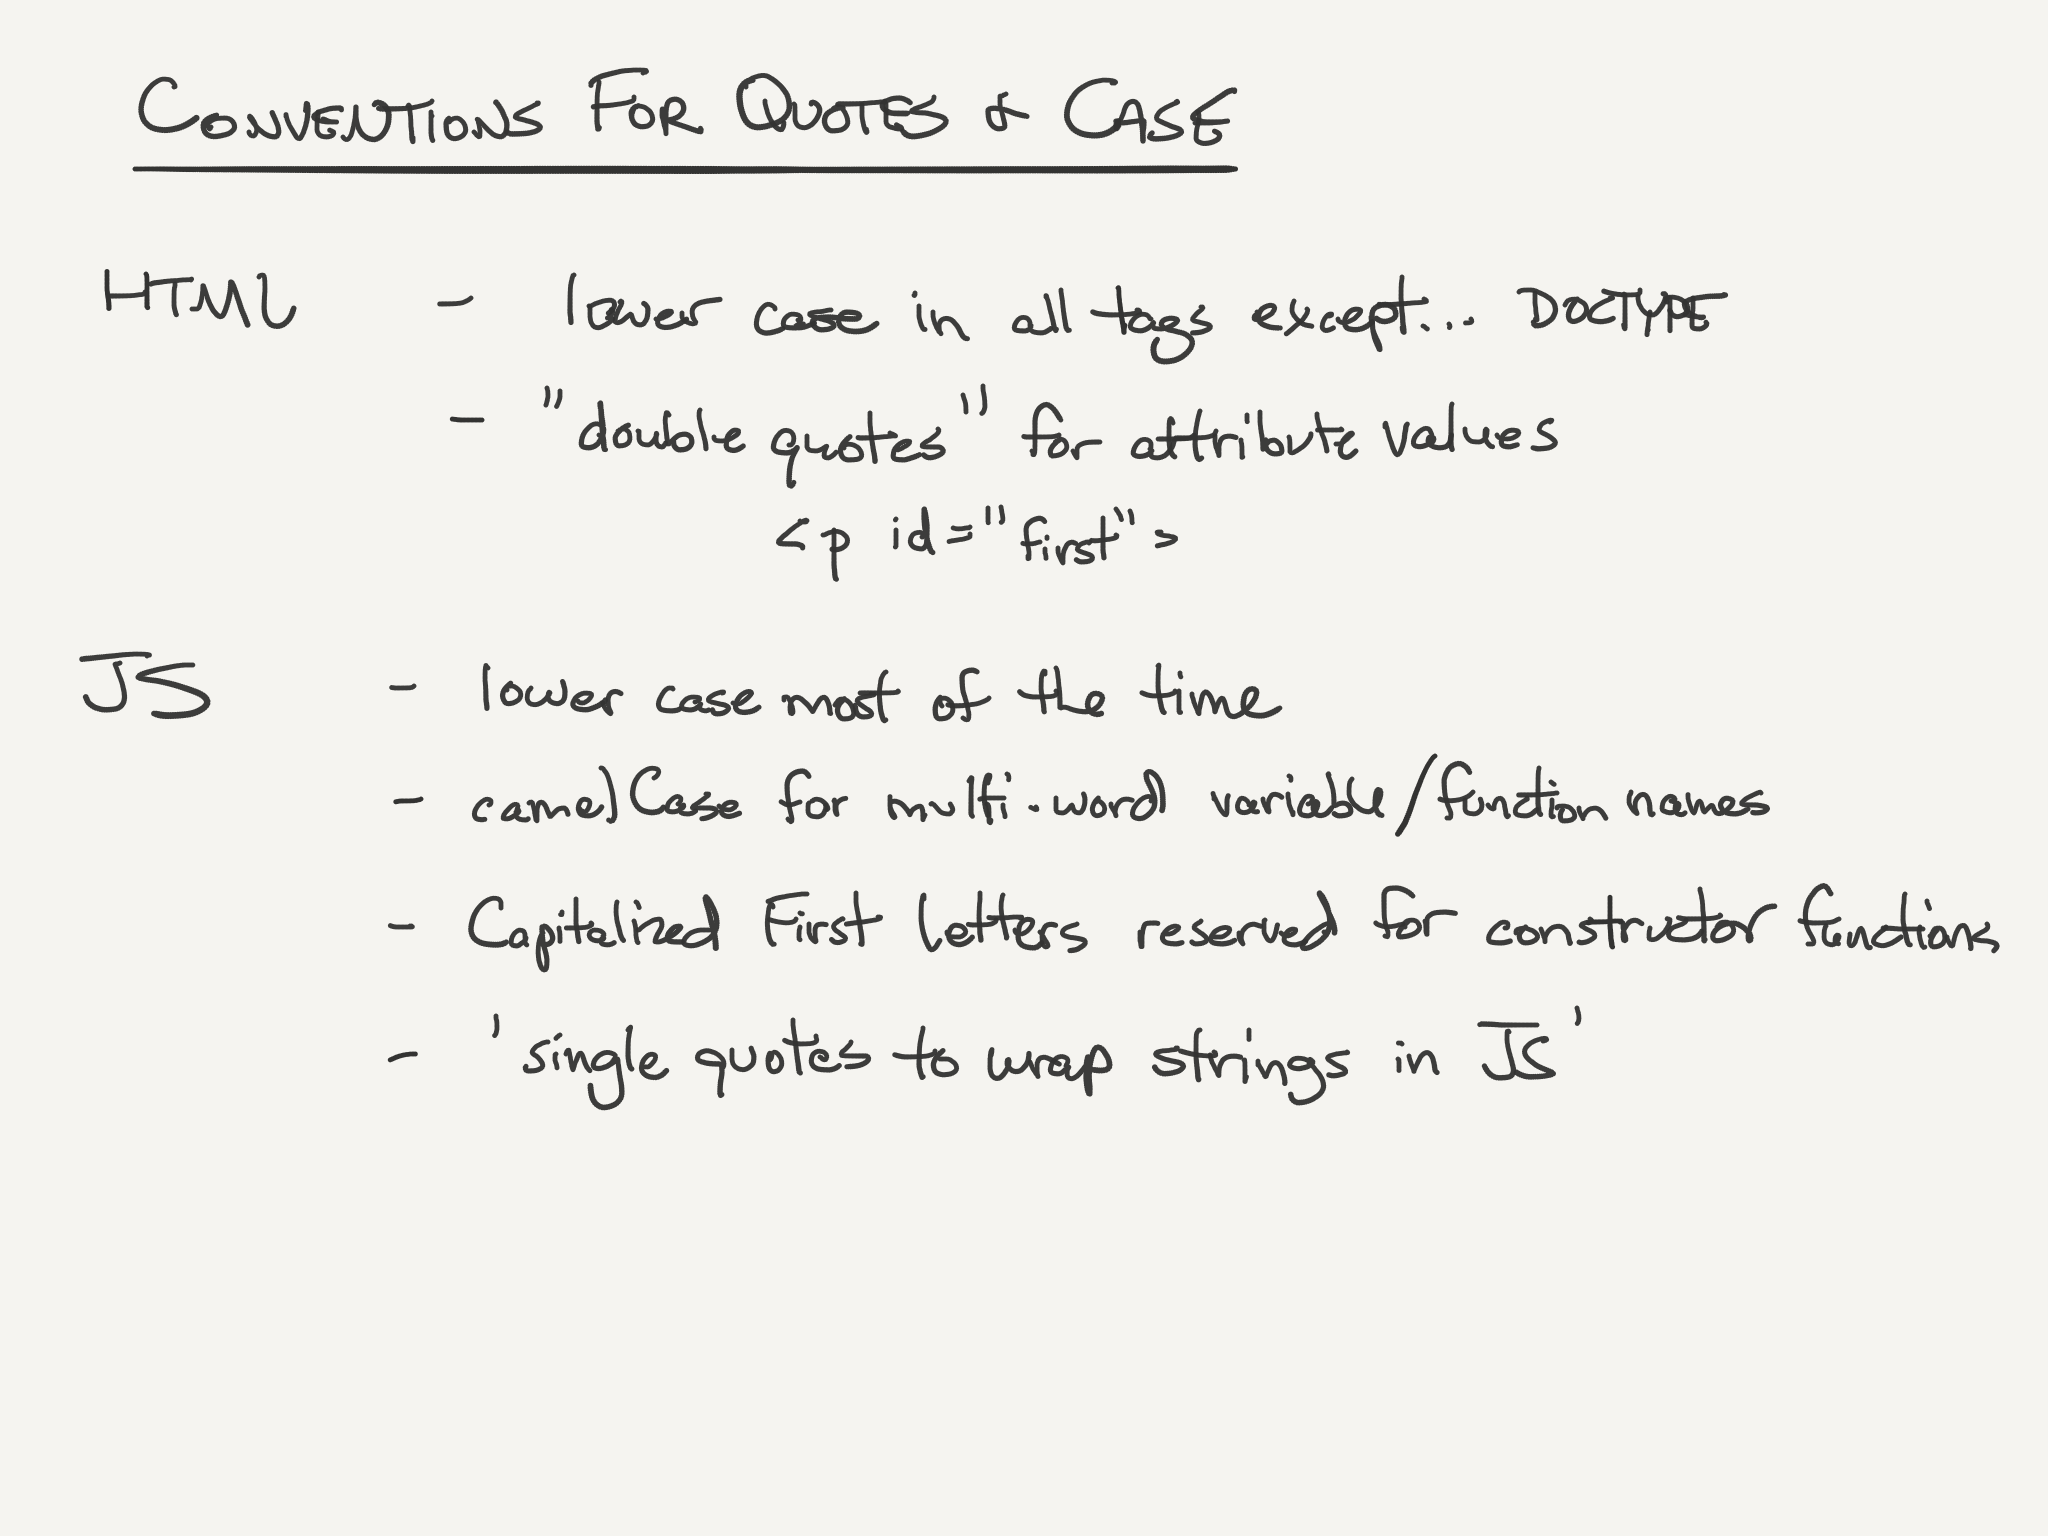 CONVENTIONS FOR QUOTES & CASE
HTML - lower case in all tags except... DOCTYPE
- "double quotes" for attribute values
<p id="first">
JS - lower case most of the time
- camelCase for multi-word variable/function names
- Capitalized First Letters reserved for constructor functions
- 'single quotes to wrap strings in JS'